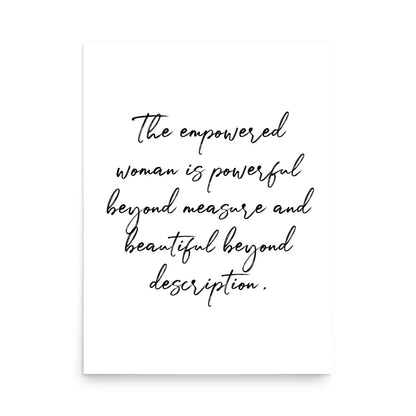 The empowered
woman is powerful
beyond measure and
beautiful beyond
description.